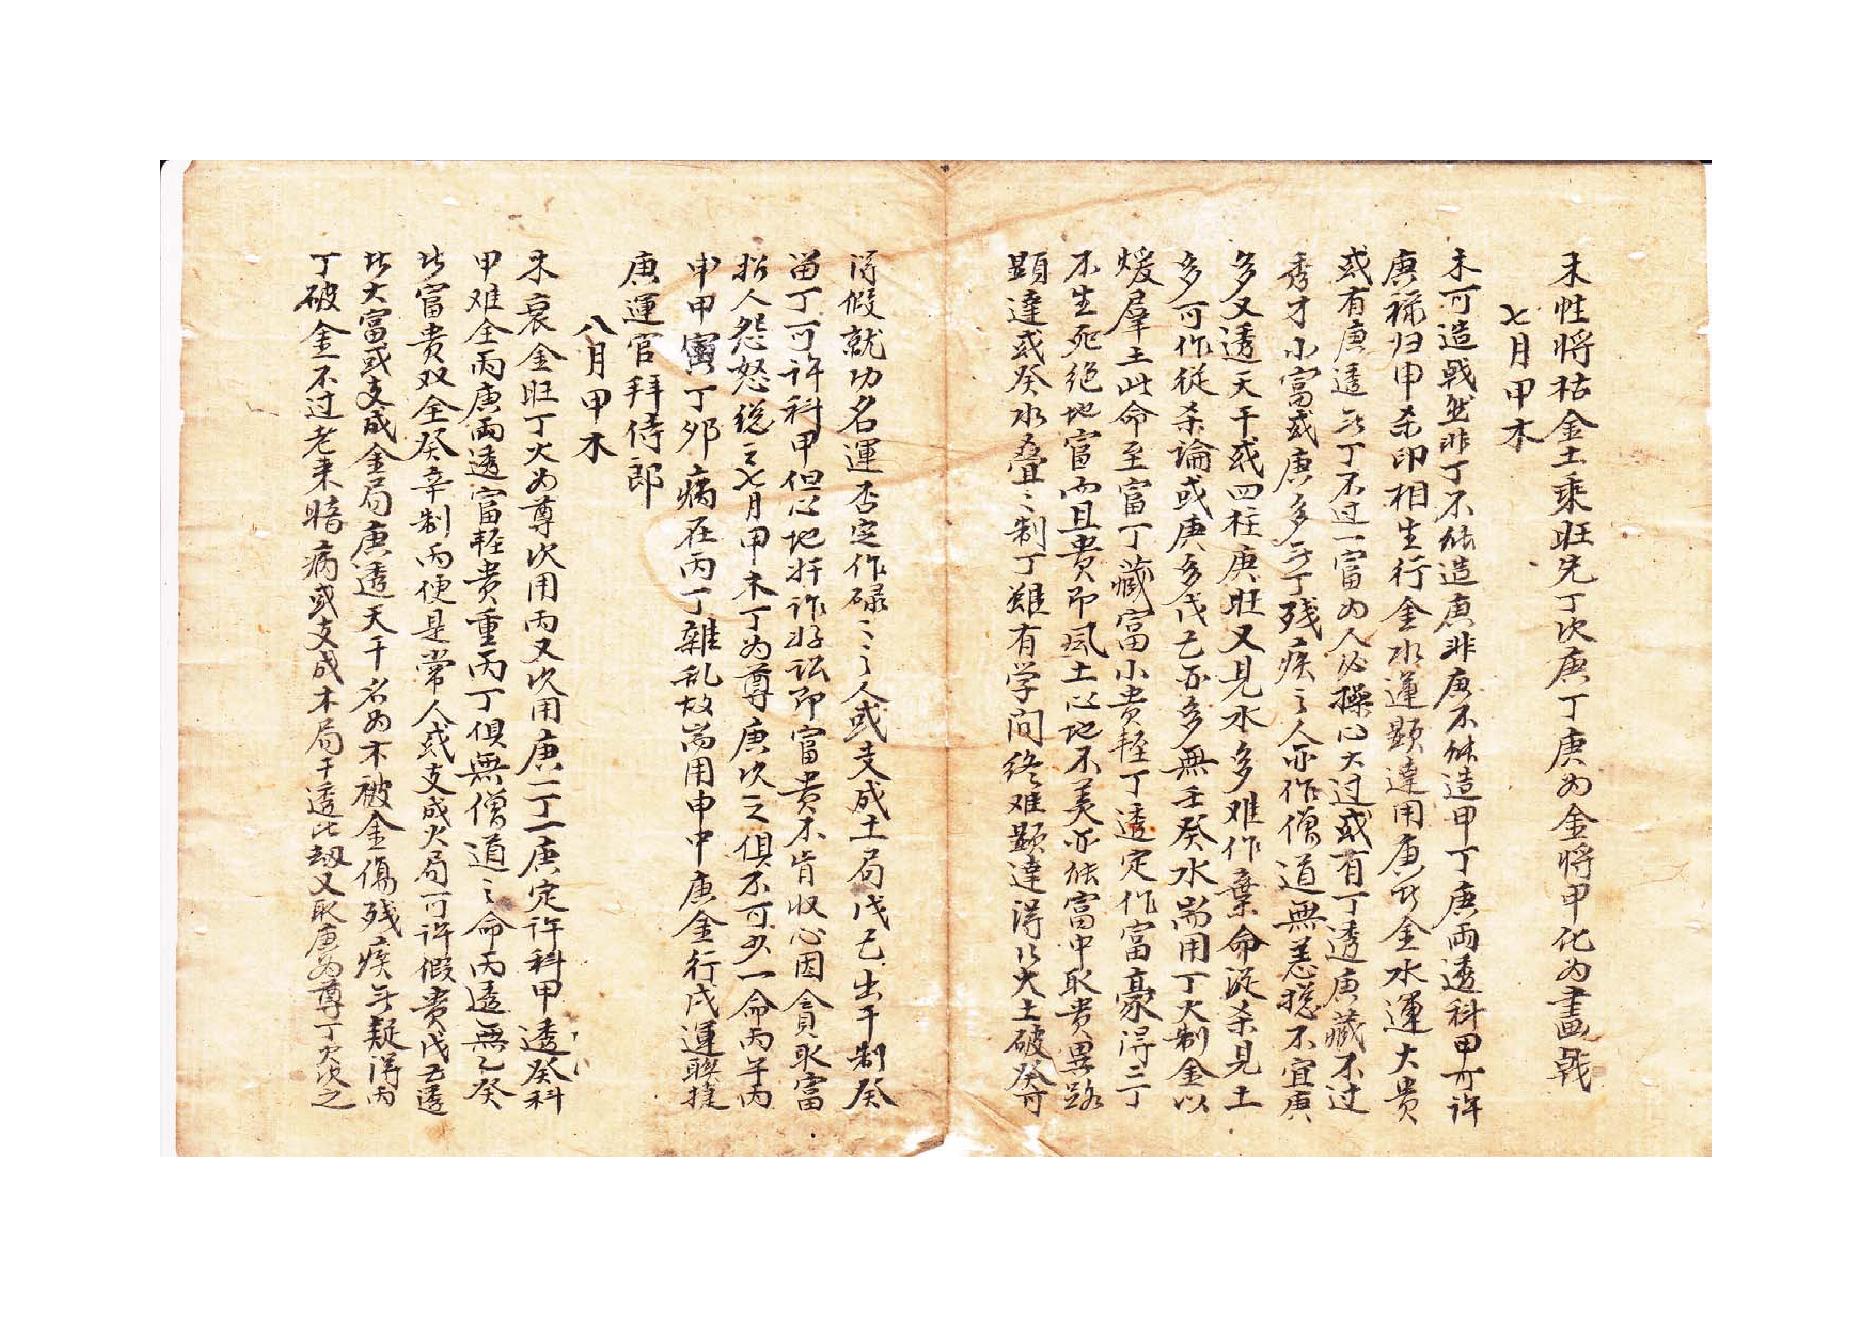 七月甲木
木性将枯金土乘旺先丁次庚丁庚为金将甲化为畫戟
木可造戟然非丁不能造庚非庚不能造甲丁庚両透科甲可许
庚禄归申杀印相生行金水運顕達用庚此金水運大贵
或有庚透无丁不过一富为人必操心大过或有丁透庚藏不过
秀才小富或庚多无丁残疾之人亦作僧道無恙揔不宜庚
多又透天干或四柱庚旺又見水多难作棄命從杀見土
多可作從杀論或庚多戊己亦多無壬癸水耑用丁火制金以
煖羣土此命至富丁藏富小贵軽丁透定作富豪淂二丁
不生死绝地富而且貴即風土心地不美亦能富中取貴異路
顕達或癸水叠〻制丁雖有学问终难顕達淂以火土破癸可
淂假就功名運否定作碌〻之人或支成土局戊己出干制癸
畄丁可许科甲但心地奸诈好訟即富貴不肯收心因貪取富
招人怨怒縂之七月甲木丁为尊庚次之俱不可少一命丙午丙
申甲寅丁卯病在丙丁雜乱故耑用申中庚金行戌運聫捷
庚運官拜侍郎
八月甲木
木衰金旺丁火为尊次用丙又次用庚一丁一庚定许科甲透癸科
甲难全丙庚両透富軽貴重丙丁俱無僧道之命丙透無癸
此富貴双全癸辛制丙便是常人或支成火局可许假贵戊己透
此大富或支成金局庚透天干名为木被金傷残疾无疑淂丙
丁破金不过老来暗病或支成木局干透比劫又取庚为尊丁火次之